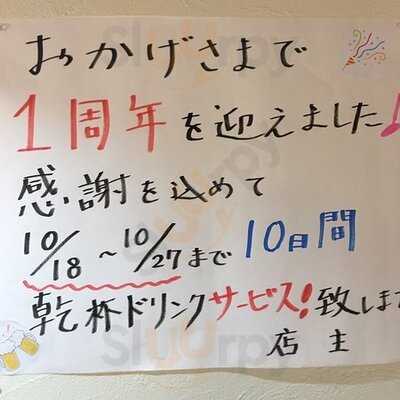 おかげさまで
1周年を迎えました♪
感謝を込めて
10/18~10/27まで 10日間
乾杯ドリンクサービス!致します
店主